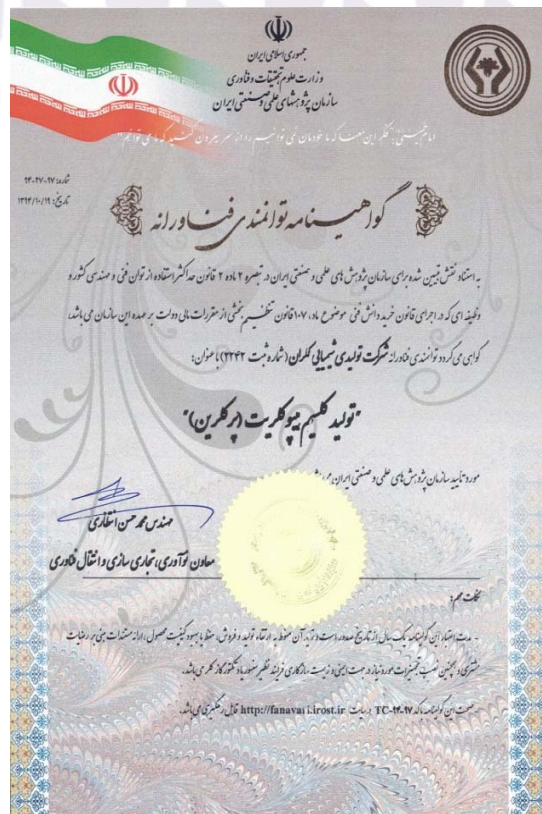 جمهوری اسلامی ایران
وزارت علوم، تحقیقات و فناوری
سازمان پژوهشهای علمی و صنعتی ایران
امام خمینی: فکر این معنا که ما خودمان نمی توانیم را از سر بیرون کنید که ما می توانیم
شماره: ۹۷-۲۷-۹۴
تاریخ: ۱۳۹۴/۱۰/۱۹
گواهینامه توانمندی فناورانه
به استناد نقش تبیین شده برای سازمان پژوهش های علمی و صنعتی ایران در تبصره ۲ ماده ۲ قانون حداکثر استفاده از توان فنی و مهندسی کشور و
وظیفه ای که در اجرای قانون خرید دانش فنی موضوع ماده ۱۰۷ قانون تنظیم بخشی از مقررات مالی دولت بر عهده این سازمان می باشد،
گواهی می گردد توانمندی فناورانه شرکت تولیدی شیمیایی کلران (شماره ثبت ۲۲۴۲) با عنوان:
"تولید کلسیم هیپوکلریت (پرکلرین)"
مورد تأیید سازمان پژوهش های علمی و صنعتی ایران می باشد
مهندس محمد حسن انتظاری
معاون نوآوری، تجاری سازی و انتقال فناوری
نکات مهم:
- مدت اعتبار این گواهینامه یک سال از تاریخ صدور است و تمدید آن منوط به ارتقاء تولید و فروش، حفظ یا بهبود کیفیت محصول، ارائه مستندات مبنی بر رضایت
مشتری و همچنین نصب تجهیزات مورد نیاز در جهت ایمنی و زیست سازگاری فرایند نظیر
- صحت این گواهینامه با کد TC-94-97 در سایت http://fanavari.irost.ir قابل رهگیری می باشد.